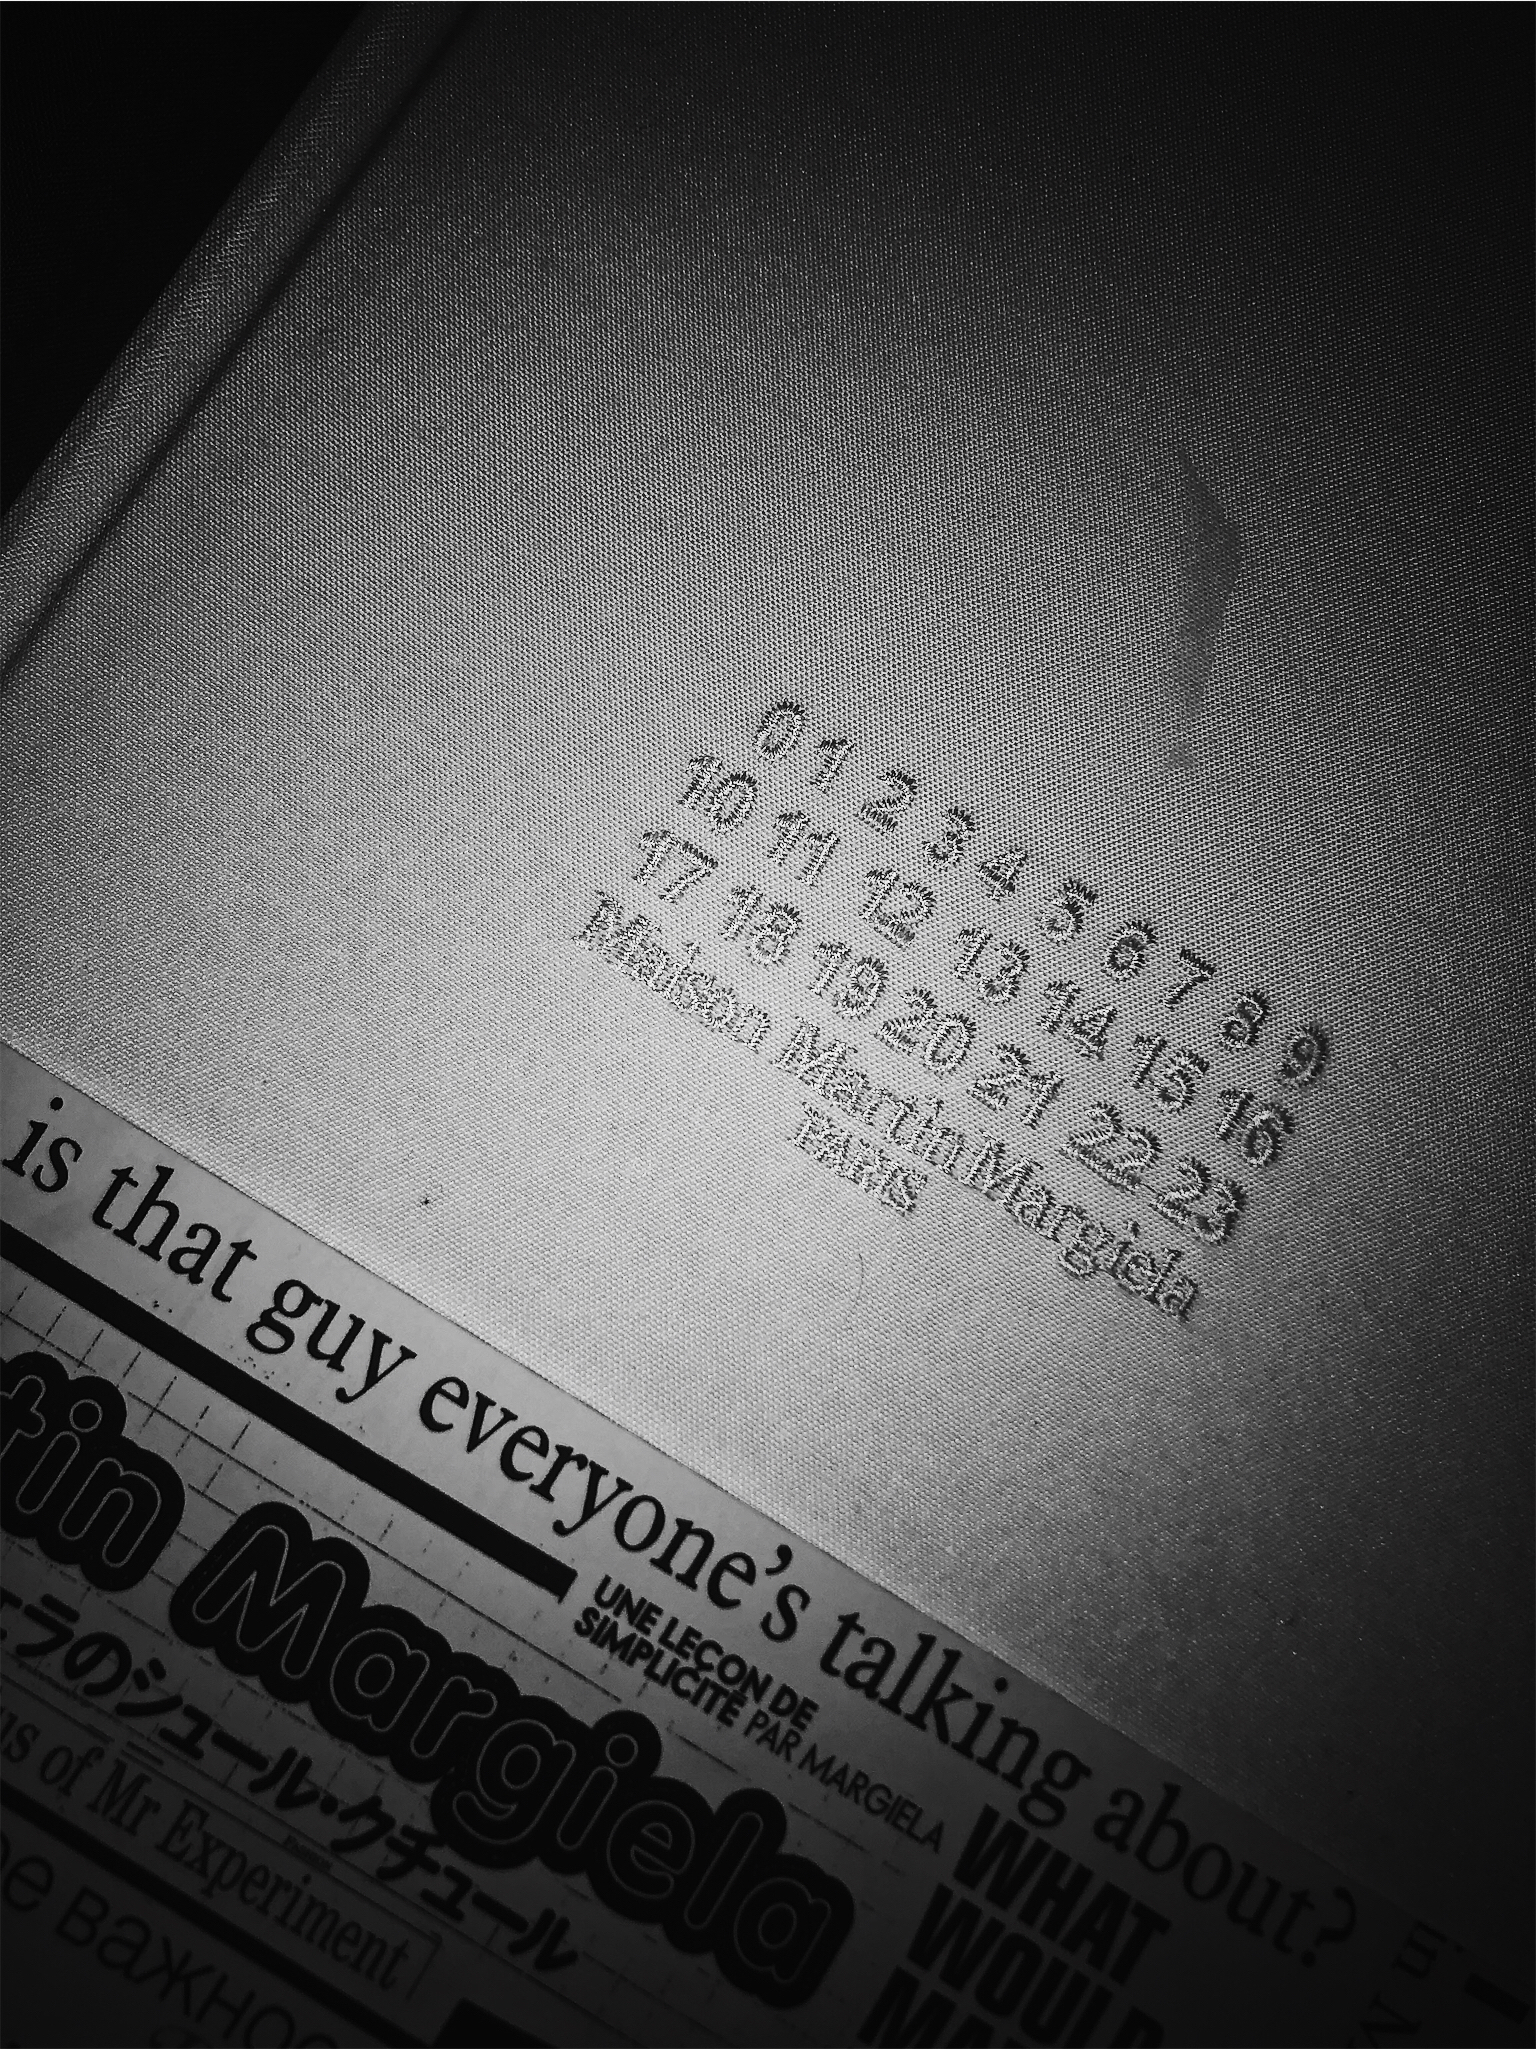 0 1 2 3 4 5 6 7 8 9
10 11 12 13 14 15 16
17 18 19 20 21 22 23
Maison Martin Margiela
PARIS
is that guy everyone's talking about?
UNE LEÇON DE
SIMPLICITÉ PAR MARGIELA
tin Margiela
ラのシュール・クチュール
WHAT
WOULD
us of Mr Experiment